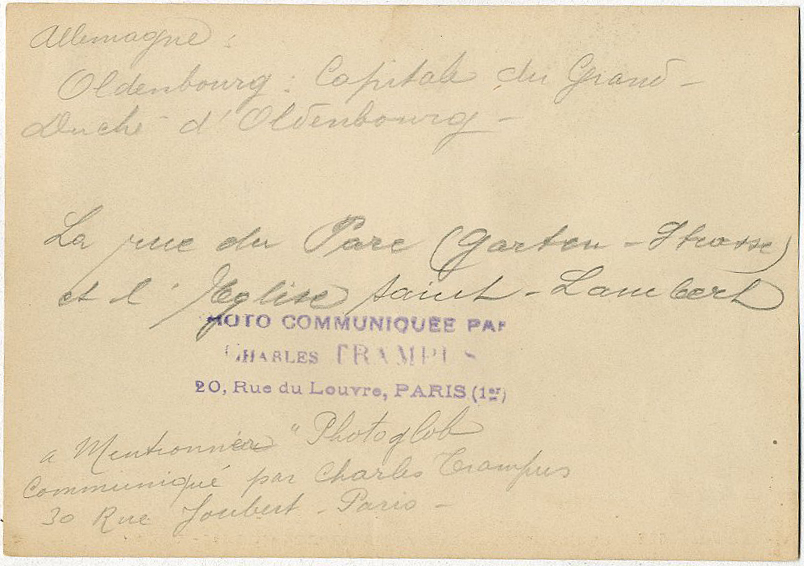 Allemagne :
Oldenbourg : Capitale du Grand-
Duché d'Oldenbourg -
La rue du Parc (Garten-Strasse)
et l'Eglise Saint-Lambert
PHOTO COMMUNIQUÉE PAR
CHARLES TRAMPUS
20, Rue du Louvre, PARIS (1er)
a Mentionner "Photoglob
Communiqué par Charles Trampus
30 Rue Joubert - Paris -